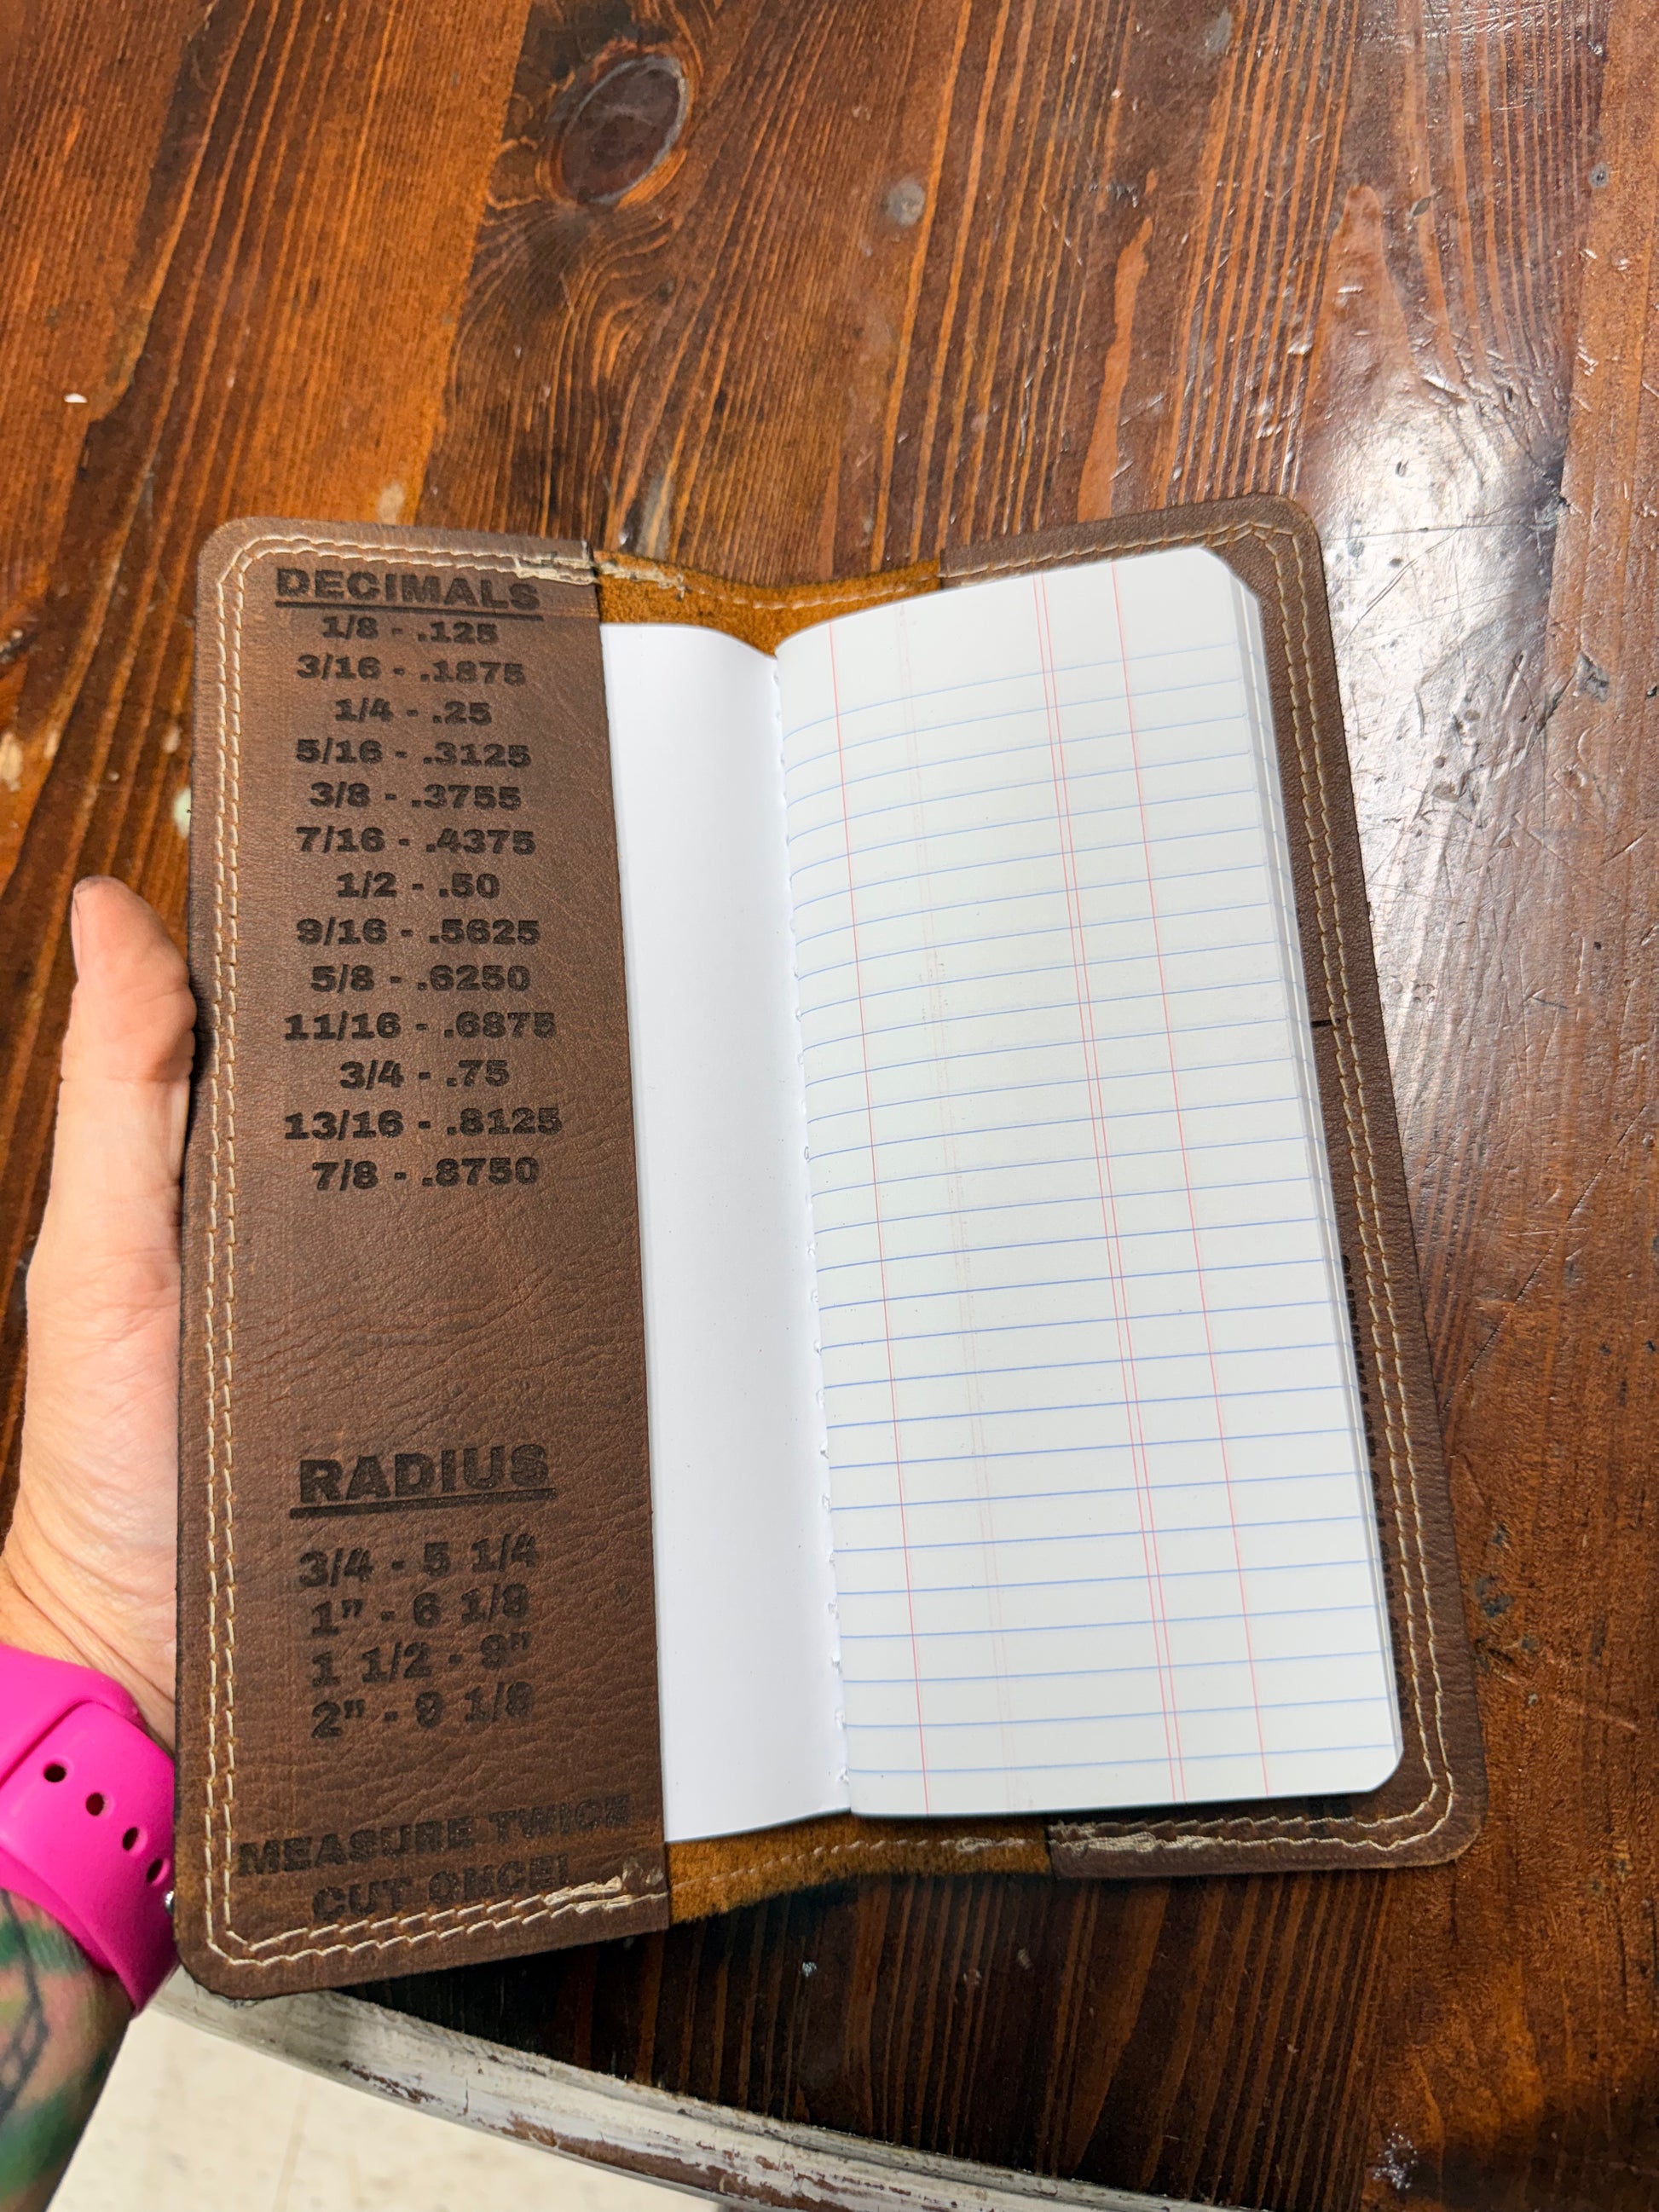 DECIMALS
1/8 - .125
3/16 - .1875
1/4 - .25
5/16 - .3125
3/8 - .3755
7/16 - .4375
1/2 - .50
9/16 - .5625
5/8 - .6250
11/16 - .6875
3/4 - .75
13/16 - .8125
7/8 - .8750
RADIUS
3/4 - 5 1/4
1" - 6 1/8
1 1/2 - 9"
2" - 9 1/8
MEASURE TWICE
CUT ONCE!